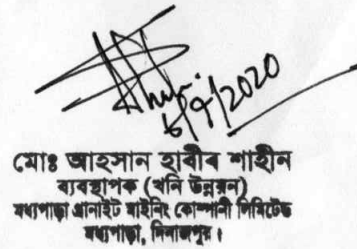 6/9/2020
মোঃ আহসান হাবীব শাহীন
ব্যবস্থাপক (খনি উন্নয়ন)
মধ্যপাড়া গ্রানাইট মাইনিং কোম্পানী লিমিটেড
মধ্যপাড়া, দিনাজপুর।